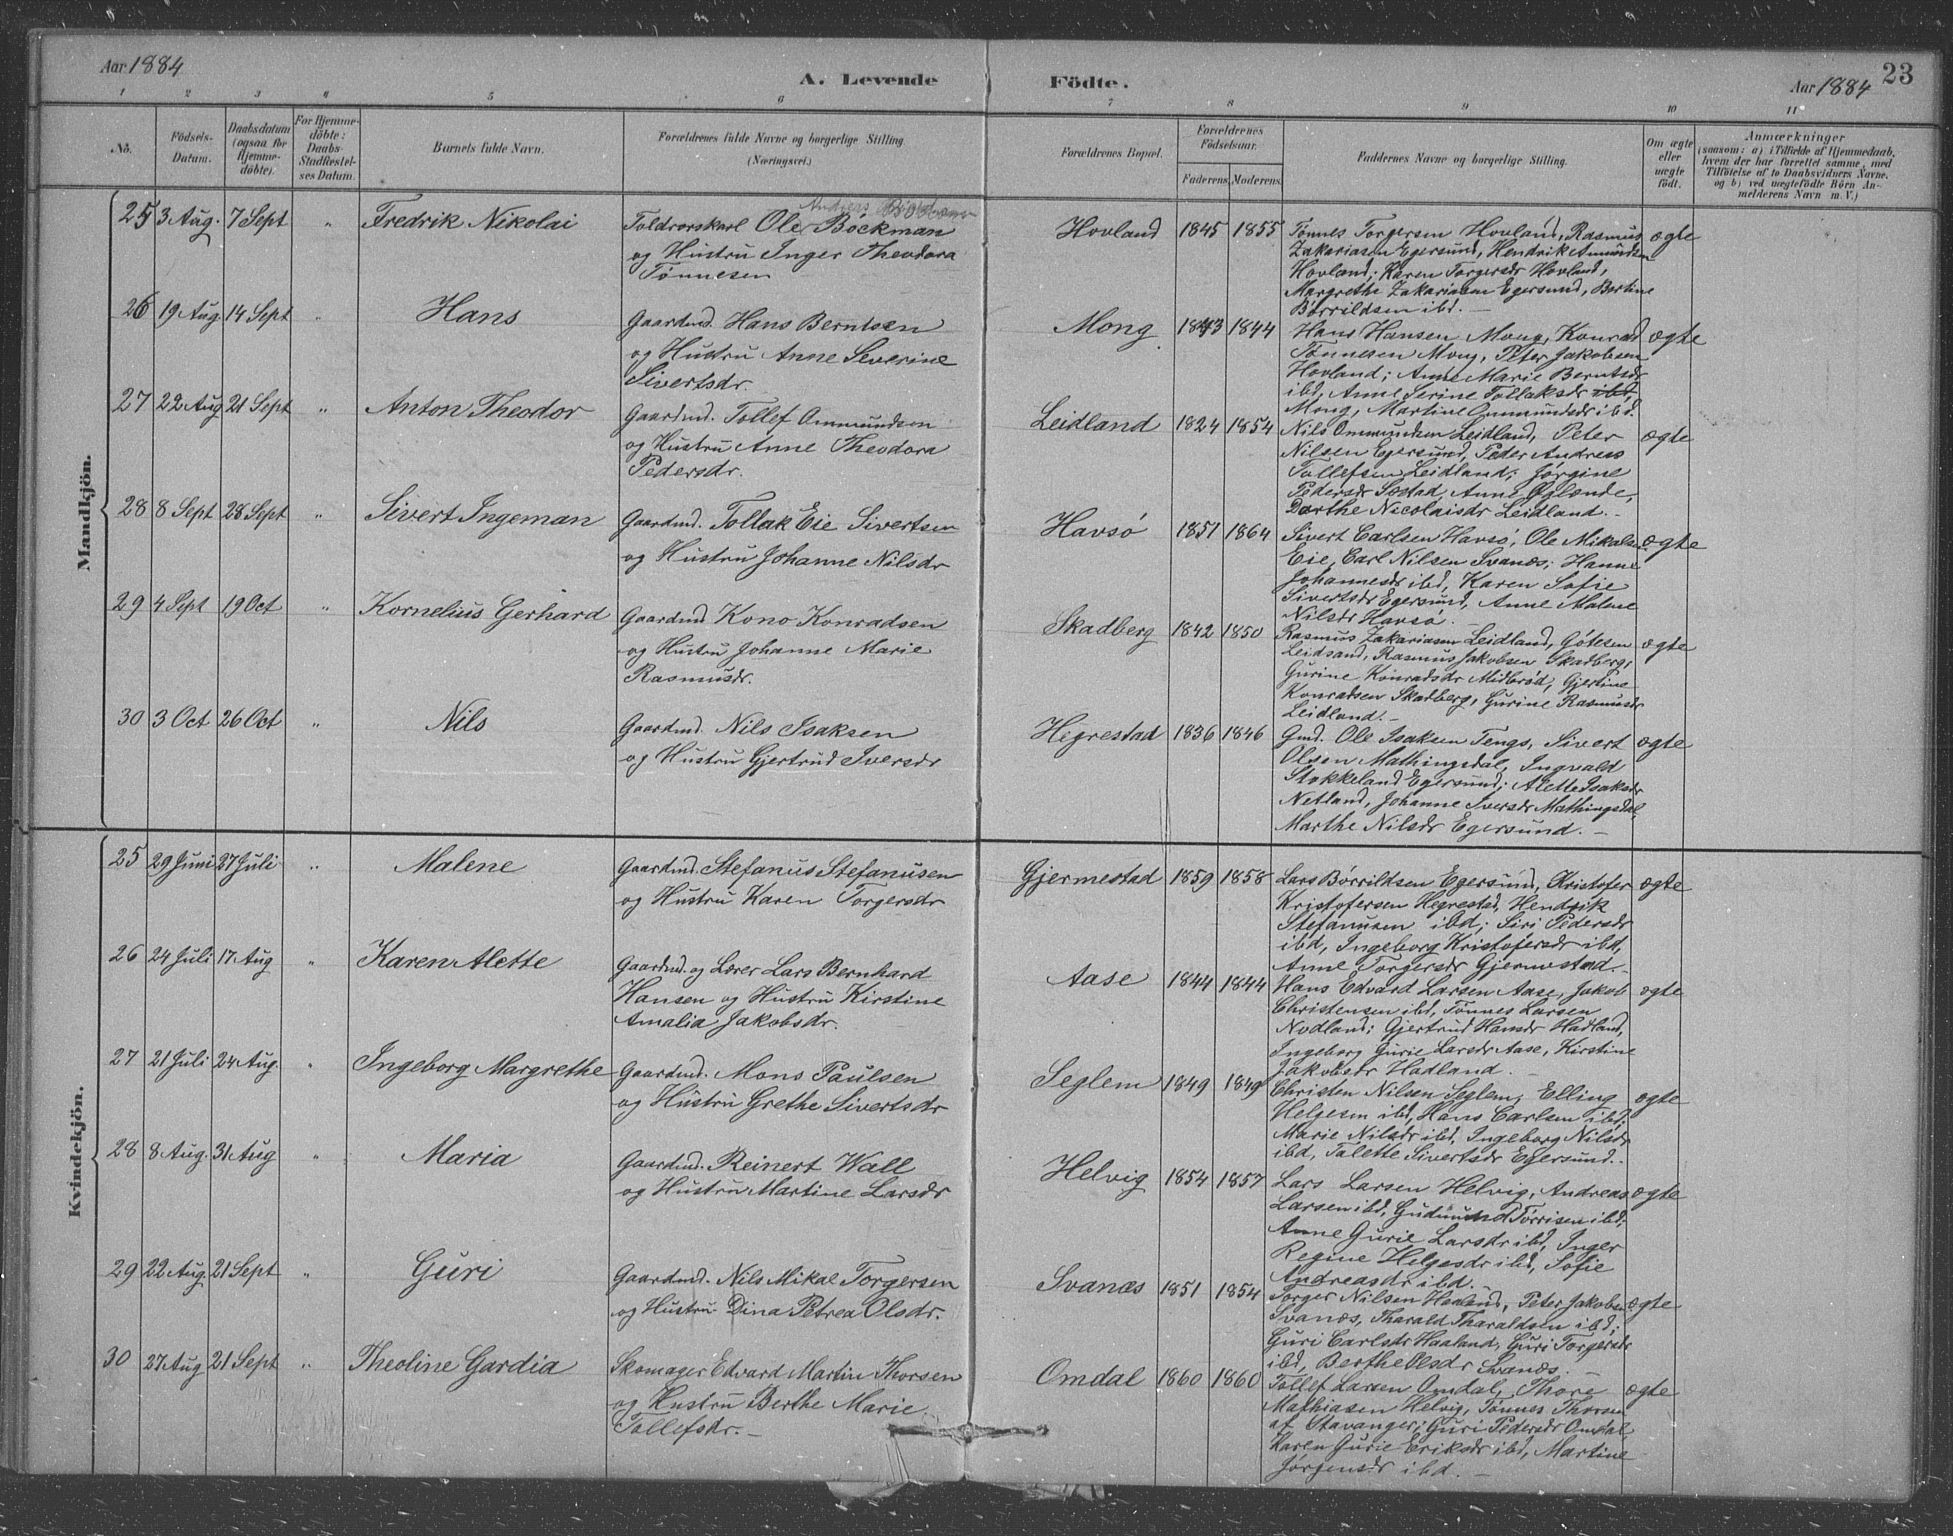 Aar 1884
A. Levende Födte.
Aar 1884
23
1 2 3 4 5 6 7 8 9 10 11
No.
Födsels-
Datum.
Daabsdatum
(ogsaa for
Hjemme-
döbte).
For Hjemme-
döbte:
Daabs-
Stadfæstel-
ses Datum.
Barnets fulde Navn.
Forældrenes fulde Navne og borgerlige Stilling
(Næringsvei.)
Forældrenes Bopæl.
Forældrenes
Födselsaar.
Faderens. Moderens.
Faddernes Navne og borgerlige Stilling.
Om ægte
eller
uægte
født.
Anmærkninger
(saasom: a) i Tilfælde af Hjemmedaab,
hvem der har forrettet samme, med
Tilföielse af to Daabsvidners Navne,
og b) ved uægtefødte Börn An-
melderens Navn m. V.)
Mandkjön.
25 3 Aug. 7 Sept " Fredrik Nikolai
Andreas
Toldrorskarl Ole Böckman
og Hustru Inger Theodora
Tønnesen
Hovland 1845 1855
Tønnes Torgersen Hovland, Rasmus
Zakariasen Egersund, Hendrik Amundsen
Hovland; Karen Torgersdr Hovland,
Margrethe Zakariasen Egersund, Bertine
Børrildsen ibd. —
ægte
26 19 Aug 14 Sept " Hans
Gaardmd. Hans Berntsen
og Hustru Anne Severine
Sivertsdr.
Mong 1843 1844
Hans Hansen Mong, Konrad
Tønnesen Mong, Peter Jakobsen
Hovland; Anne Marie Berntsdr
ibd, Anne Serine Tollaksdr ibd
Mong, Martine Ommundsdr ibd.
ægte
27 22 Aug 21 Sept " Anton Theodor
Gaardmd. Tollef Ommundsen
og Hustru Anne Theodora
Pedersdr.
Leidland 1824 1854
Nils Ommundsen Leidland, Peter
Nilsen Egersund, Peder Andreas
Tollefsen Leidland; Jørgine
Pedersdr Sæstad, Anne Øglænde,
Dorthe Nicolaisdr Leidland. -
ægte
28 8 Sept 28 Sept " Sivert Ingeman
Gaardmd. Tollak Eie Sivertsen
og Hustru Johanne Nilsdr
Havsø 1851 1864
Sivert Carlsen Havsø, Ole Mikalsen
Eie, Carl Nilsen Svanæs; Hanne
Johannesdr ibd, Karen Sofie
Sivertsdr Egersund, Anne Malene
Nilsdr Havsø. —
ægte
29 4 Sept 19 Oct " Kornelius Gerhard
Gaardmd Kono Konradsen
og Hustru Johanne Marie
Rasmusdr.
Skadberg 1842 1850
Rasmus Zakariasen Leidland, Götesen
Leidsand, Rasmus Jakobsen Skadberg;
Gurine Konradsdr Midbrød, Gjertine
Konradsen Skadberg, Gurine Rasmusdr
Leidland. -
ægte
30 3 Oct 26 Oct " Nils
Gaardmd. Nils Isaksen
og Hustru Gjertrud Iversdr
Hegrestad 1836 1846
Gmd. Ole Isaksen Tengs, Sivert
Olsen Mathingsdal, Ingvald
Stokkeland Egersund; Alette Isaksdr
Netland, Johanne Iversdr Mathingsdal,
Marthe Nilsdr Egersund. —
ægte
Kvindekjön.
25 29 Juni 27 Juli " Malene
Gaardmd. Stefanus Stefanusen
og Hustru Karen Torgersdr
Gjermestad 1859 1858
Lars Børrildsen Egersund, Kristofer
Kristofersen Hegrestad, Hendrik
Stefanusen ibd; Siri Pedersdr
ibd, Ingeborg Kristofersdr ibd,
Anne Torgersdr Gjermestad. -
ægte
26 24 Juli 17 Aug " Karen Alette
Gaardmd. og Lærer Lars Bernhard
Hansen og Hustru Kirstine
Amalia Jakobsdr.
Aase 1844 1844
Hans Edvard Larsen Aase, Jakob
Christensen ibd, Tønnes Larsen
Nodland; Gjertrud Hansdr Hadland,
Ingeborg Gurie Larsdr Aase, Kirstine
Jakobsdr Hadland. —
ægte
27 21 Juli 24 Aug. " Ingeborg Margrethe
Gaardmd. Mons Paulsen
og Hustru Grethe Sivertsdr
Seglem 1849 1849
Christen Nilsen Seglem, Elling
Helgesen ibd, Hans Carlsen ibd;
Marie Nilsdr ibd, Ingeborg Nilsdr
ibd, Talette Sivertsdr Egersund. -
ægte
28 8 Aug. 31 Aug " Maria
Gaardmd. Reinert Wall
og Hustru Martine Larsdr
Helvig 1854 1857
Lars Larsen Helvig, Andreas
Larsen ibd, Gudmund Tørrisen ibd;
Anne Gurie Larsdr ibd, Inger
Regine Helgesdr ibd, Sofie
Andreasdr ibd. -
ægte
29 22 Aug. 21 Sept " Guri
Gaardmd. Nils Mikal Torgersen
og Hustru Dina Petrea Olsdr.
Svanæs 1851 1854
Torger Nilsen , Peter Jakobsen
Svanæs, Tharald Tharaldsen ibd;
Guri Carlsdr Haaland, Guri Torgersdr
ibd, Berthe Olsdr Svanæs. —
ægte
30 27 Aug 21 Sept " Theoline Gardia
Skomager Edvard Martin Thorsen
og Hustru Berthe Marie
Tollefsdr. -
Omdal 1860 1860
Tollef Larsen Omdal, Thore
Mathiasen Helvig, Tønnes Thorsen
af Stavanger; Guri Pedersdr Omdal,
Karen Gurie Eriksdr ibd, Martine
Jørgensdr ibd. —
ægte